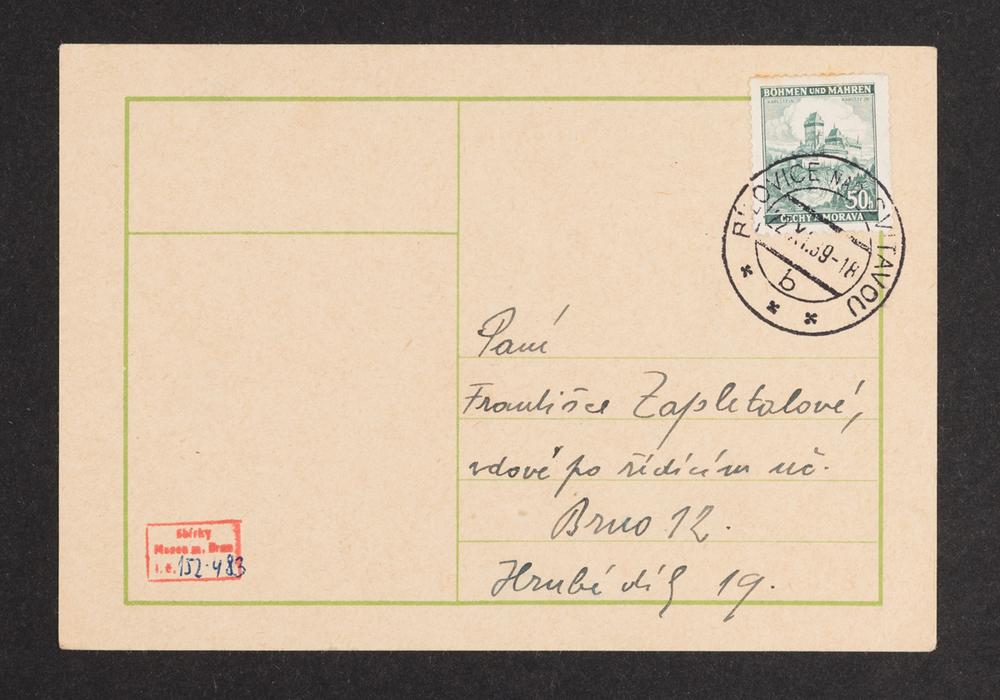 BÖHMEN UND MÄHREN
KARLSTEIN
KARLŠTEJN
50h
ČECHY A MORAVA
BÍLOVICE NAD SVITAVOU
22.XI.39-18
b
Paní
Františce Zapletalové,
vdově po řídícím uč.
Brno 12.
Hrubé díly 19.
Sbírky
Musea m. Brna
i. č. 152.483